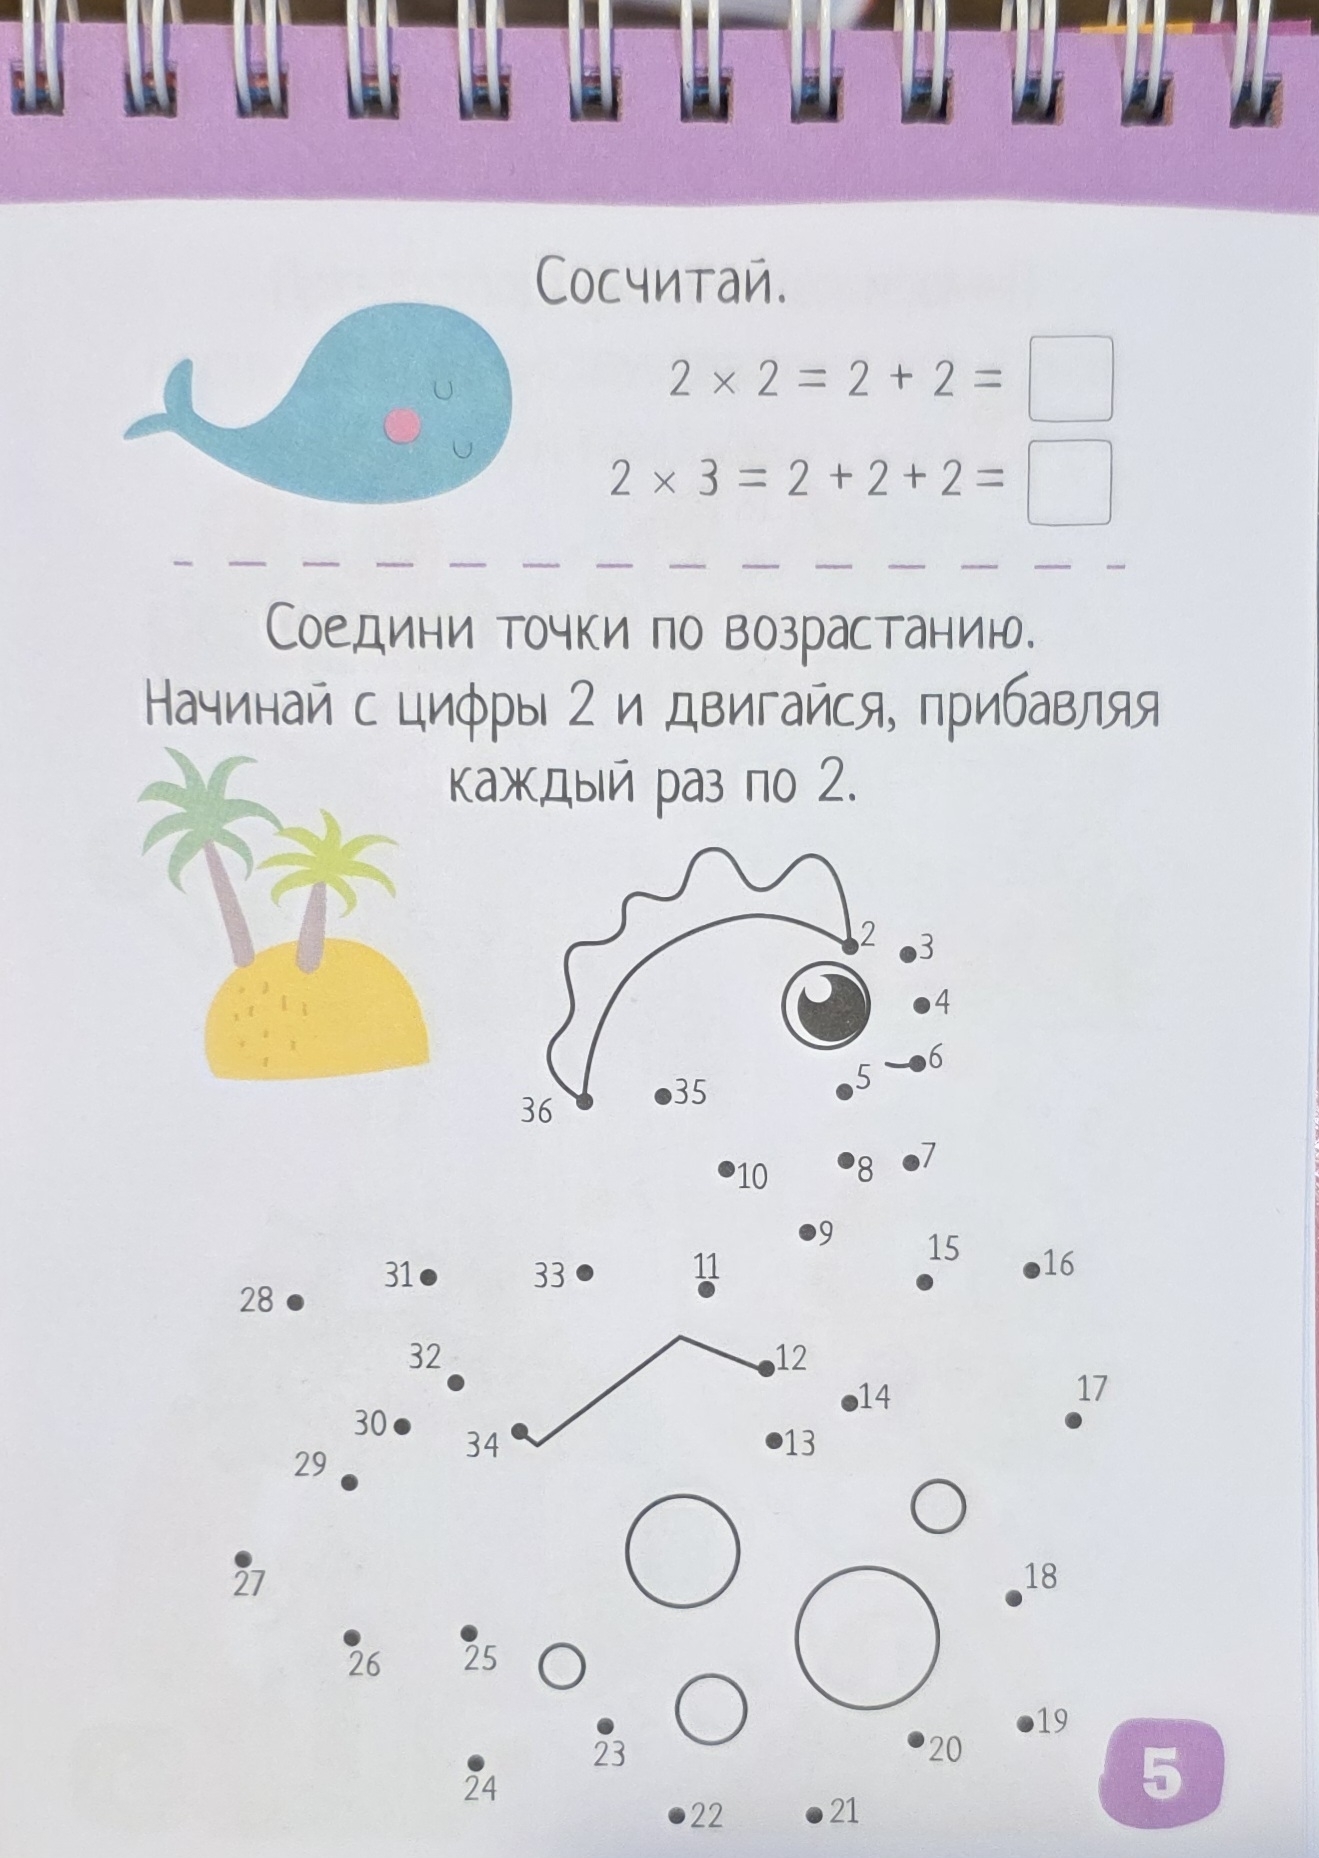 Сосчитай.
2 × 2 = 2 + 2 =
2 × 3 = 2 + 2 + 2 =
Соедини точки по возрастанию.
Начинай с цифры 2 и двигайся, прибавляя
каждый раз по 2.
2
3
4
6
5
36
35
10
8
7
9
15
16
31
33
11
28
32
12
17
14
30
34
13
29
27
18
26
25
19
23
20
5
24
22
21